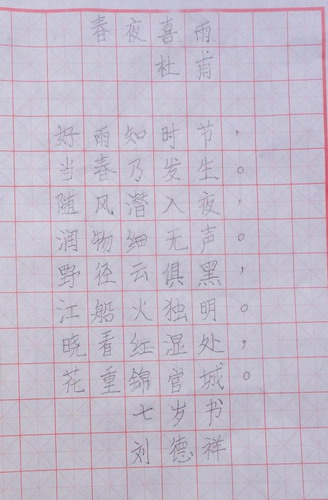 春夜喜雨
杜甫
好雨知时节，
当春乃发生。
随风潜入夜，
润物细无声。
野径云俱黑，
江船火独明。
晓看红湿处，
花重锦官城。
七岁书
刘德祥